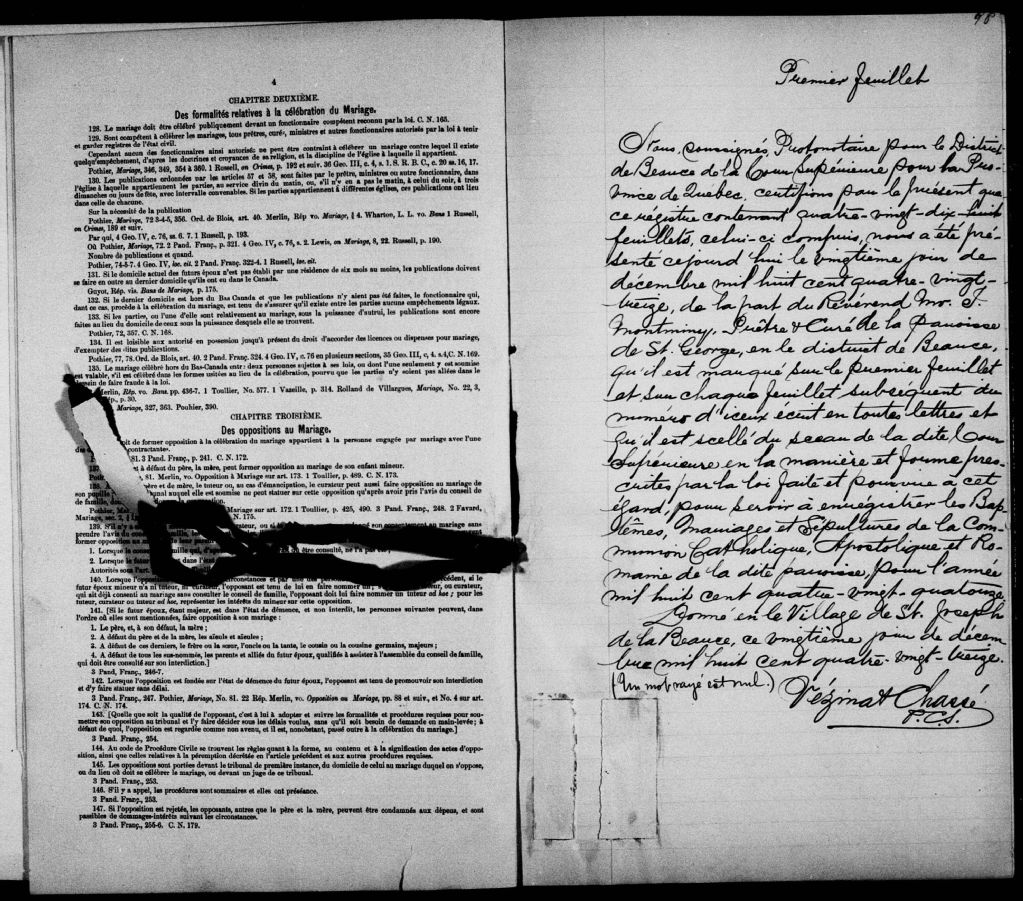 4
CHAPITRE DEUXIÈME.
Des formalités relatives à la célébration du Mariage.
128. Le mariage doit être célébré publiquement devant un fonctionnaire compétent reconnu par la loi. C. N. 165.
129. Sont compétent à célébrer les mariages, tous prêtres, curé, ministres et autres fonctionnaires autorisés par la loi à tenir
et garder registres de l'état civil.
Cependant aucun des fonctionnaires ainsi autorisés ne peut être contraint à célébrer un mariage contre lequel il existe
quelqu'empêchement, d'apres les doctrines et croyances de sa religion, et la discipline de l'église à laquelle il appartient.
Pothier, Mariage, 346, 349, 354 à 360. 1 Russell, on Crimes, p. 192 et suiv. 36 Geo. III, c. 4, s. 1. S. R. B. C., c. 20 ss. 16, 17.
130. Les publications ordonnées par les articles 57 et 58, sont faites par le prêtre, ministre ou autre fonctionnaire, dans
l'église à laquelle appartiennent les parties, au service divin du matin, ou, s'il n'y en a pas le matin, à celui du soir, à trois
dimanches ou jours de fête, avec intervalle convenables. Si les parties appartiennent à différentes églises, ces publications ont lieu
dans celle de chacune.
Sur la nécessité de la publication
Pothier, Mariage, 72 3-4-5, 356. Ord. de Blois, art. 40. Merlin, Rép vo. Mariage, § 4. Wharton, L. L. vo. Bans 1 Russell,
on Crimes, 189 et suiv.
Par qui, 4 Geo. IV, c. 76, ss. 6. 7. 1 Russell, p. 193.
Où Pothier, Mariage, 72. 2 Pand. Franç., p. 321. 4 Geo. IV, c. 76, s. 2. Lewis, on Mariage, 8, 22. Russell, p. 190.
Nombre de publications et quand.
Pothier, 74-5-7. 4 Geo. IV, loc. cit. 2 Pand. Franç. 322-4. 1 Russell, loc. cit.
131. Si le domicile actuel des futurs époux n'est pas établi par une résidence de six mois au moins, les publications doivent
se faire en outre au dernier domicile qu'ils ont eu dans le Canada.
Guyot, Rép. vis. Bans de Mariage, p. 175.
132. Si le dernier domicile est hors du Bas Canada et que les publications n'y aient pas été faites, le fonctionnaire qui,
dant ce cas, procède à la célébration du mariage, est tenu de s'assurer qu'il existe entre les parties aucuns empêchements légaux.
133. Si les parties, ou l'une d'elle sont relativement au mariage, sous la puissance d'autrui, les publications sont encore
faites au lieu du domicile de ceux sous la puissance desquels elle se trouvent.
Pothier, 72, 357. C. N. 168.
134. Il est loisible aux autorité en possession jusqu'à présent du droit d'accorder des licences ou dispenses pour mariage,
d'exempter des dites publications.
Pothier, 77, 78. Ord. de Blois, art. 40. 2 Pand. Franç. 324. 4 Geo. IV, c. 76 en plusieurs sections, 35 Geo. III, c. 4. s.4, C. N. 169.
135. Le mariage célébré hors du Bas-Canada entre deux personnes sujettes à ses lois, ou dont l'une seulement y est soumise
est valable, s'il est célébré dans les formes usitées au lieu de la célébration, pourvu que les parties n'y soient pas allées dans le
dessein de faire fraude à la loi.
Merlin, Rép. vo. Bans. pp. 436-7. 1 Toullier, No. 577. 1 Vazeille, p. 314. Rolland de Villargues, Mariage, No. 22, 3,
p. 30.
Mariage, 327, 363. Pouhier, 390.
CHAPITRE TROISIÈME.
Des oppositions au Mariage.
de former opposition à la célébration du mariage appartient à la personne engagée par mariage avec l'une
contractantes.
81. 3 Pand. Franç., p. 241. C. N. 172.
et à défaut du père, la mère, peut former opposition au mariage de son enfant mineur.
81. Merlin, vo. Opposition à Mariage sur art. 173. 1 Toullier, p. 489. C. N. 173.
père et de mère, le tuteur ou, au cas d'émancipation, le curateur peut aussi faire opposition au mariage de
son pupille auquel elle est soumise ne peut statuer sur cette opposition qu'après avoir pris l'avis du conseil
de famille,
Mariage sur art. 172. 1 Toullier, p. 425, 490. 3 Pand. Franç., 248. 2 Favard,
Mariage, sec. 2, N. 175.
139. S'il n'y a son consentement au mariage sans
prendre l'avis du
former opposition au
1. Lorsque le être consulté, ne l'a pas été ;
2. Lorsque le futur
Autorités sous l'art.
140. Lorsque circonstances et par une des précédent, si le
futur époux mineur n'a ni tuteur, ni curateur, l'opposant est tenu de lui en faire nommer un ; ou curateur,
qui ait déjà consenti au mariage sans consulter le conseil de famille, l'opposant doit lui faire nommer un tuteur ad hoc ; pour les
tuteur, curateur ou tuteur ad hoc, représenter les intérêts du mineur sur cette opposition.
141. [Si le futur époux, étant majeur, est dans l'état de démence, et non interdit, les personnes suivantes peuvent, dans
l'ordre où elles sont mentionnées, faire opposition à son mariage :
1. Le père, et, à son défaut, la mère ;
2. A défaut du père et de la mère, les aïeuls et aïeules ;
3. A défaut de ces derniers, le frère ou la sœur, l'oncle ou la tante, le cousin ou la cousine germains, majeurs ;
4. A défaut de tous les sus-nommés, les parents et alliés du futur époux, qualifiés à assister à l'assemblée du conseil de famille,
qui doit être consulté sur son interdiction.]
3 Pand. Franç., 246-7.
142. Lorsque l'opposition est fondée sur l'état de démence du futur époux, l'opposant est tenu de promouvoir son interdiction
et d'y faire statuer sans délai.
3 Pand. Franç., 247. Pothier, Mariage, No. 81. 22 Rép. Merlin, vo. Opposition au Mariage, pp. 88 et suiv., et No. 4 sur art.
174. C. N. 174.
143. [Quelle que soit la qualité de l'opposant, c'est à lui à adopter et suivre les formalités et procédures requises pour sou-
mettre son opposition au tribunal et l'y faire décider sous les délais voulus, sans qu'il soit besoin de demande en main-levée ; à
défaut de quoi, l'opposition est regardée comme non avenue, et il est, nonobstant, passé outre à la célébration du mariage.]
3 Pand. Franç., 254.
144. Au code de Procédure Civile se trouvent les règles quant à la forme, au contenu et à la signification des actes d'oppo-
sition, ainsi que celles relatives à la péremption décrétée en l'article précédent et aux autres procédures requises.
145. Les oppositions sont portées devant le tribunal de première instance, du domicile de celui au mariage duquel on s'oppose,
ou du lieu où doit se célébrer le mariage, ou devant un juge de ce tribunal.
3 Pand. Franç., 253.
146. S'il y a appel, les procédures sont sommaires et elles ont préséance.
3 Pand. Franç., 253.
147. Si l'opposition est rejetée, les opposants, autres que le père et la mère, peuvent être condamnés aux dépens, et sont
passibles de dommages-intérêts suivant les circonstances.
3 Pand. Franç., 255-6. C. N. 179.
98
Premier feuillet
Nous, soussignés, Protonotaire pour le District
de Beauce de la Cour Supérieure pour la Pro-
vince de Quebec, certifions par le présent que
ce régistre contenant quatre-vingt-dix-huit
feuillets, celui-ci compris, nous a été pré-
senté ce jourd'hui le vingtième jour de
décembre mil huit cent quatre-vingt-
treize, de la part du Révérend Mr. T.
Montminy, Prêtre & Curé de la paroisse
de St. George, en le district de Beauce,
qu'il est marqué sur le premier feuillet
et sur chaque feuillet subséquent du
numéro d'iceux écrit en toutes lettres et
qu'il est scellé du sceau de la dite Cour
Supérieure en la manière et forme pres-
crites par la loi faite et pourvue à cet
égard, pour servir à enregistrer les Bap-
têmes, Mariages et Sépultures de la Com-
munion Catholique, Apostolique et Ro-
maine de la dite paroisse, pour l'année
mil huit cent quatre-vingt-quatorze.
Donné en le Village de St. Joseph
de la Beauce, ce vingtième jour de décem
bre mil huit cent quatre-vingt-treize.
(Un mot rayé est nul.)
Vézina & Chassé
P.C.S.